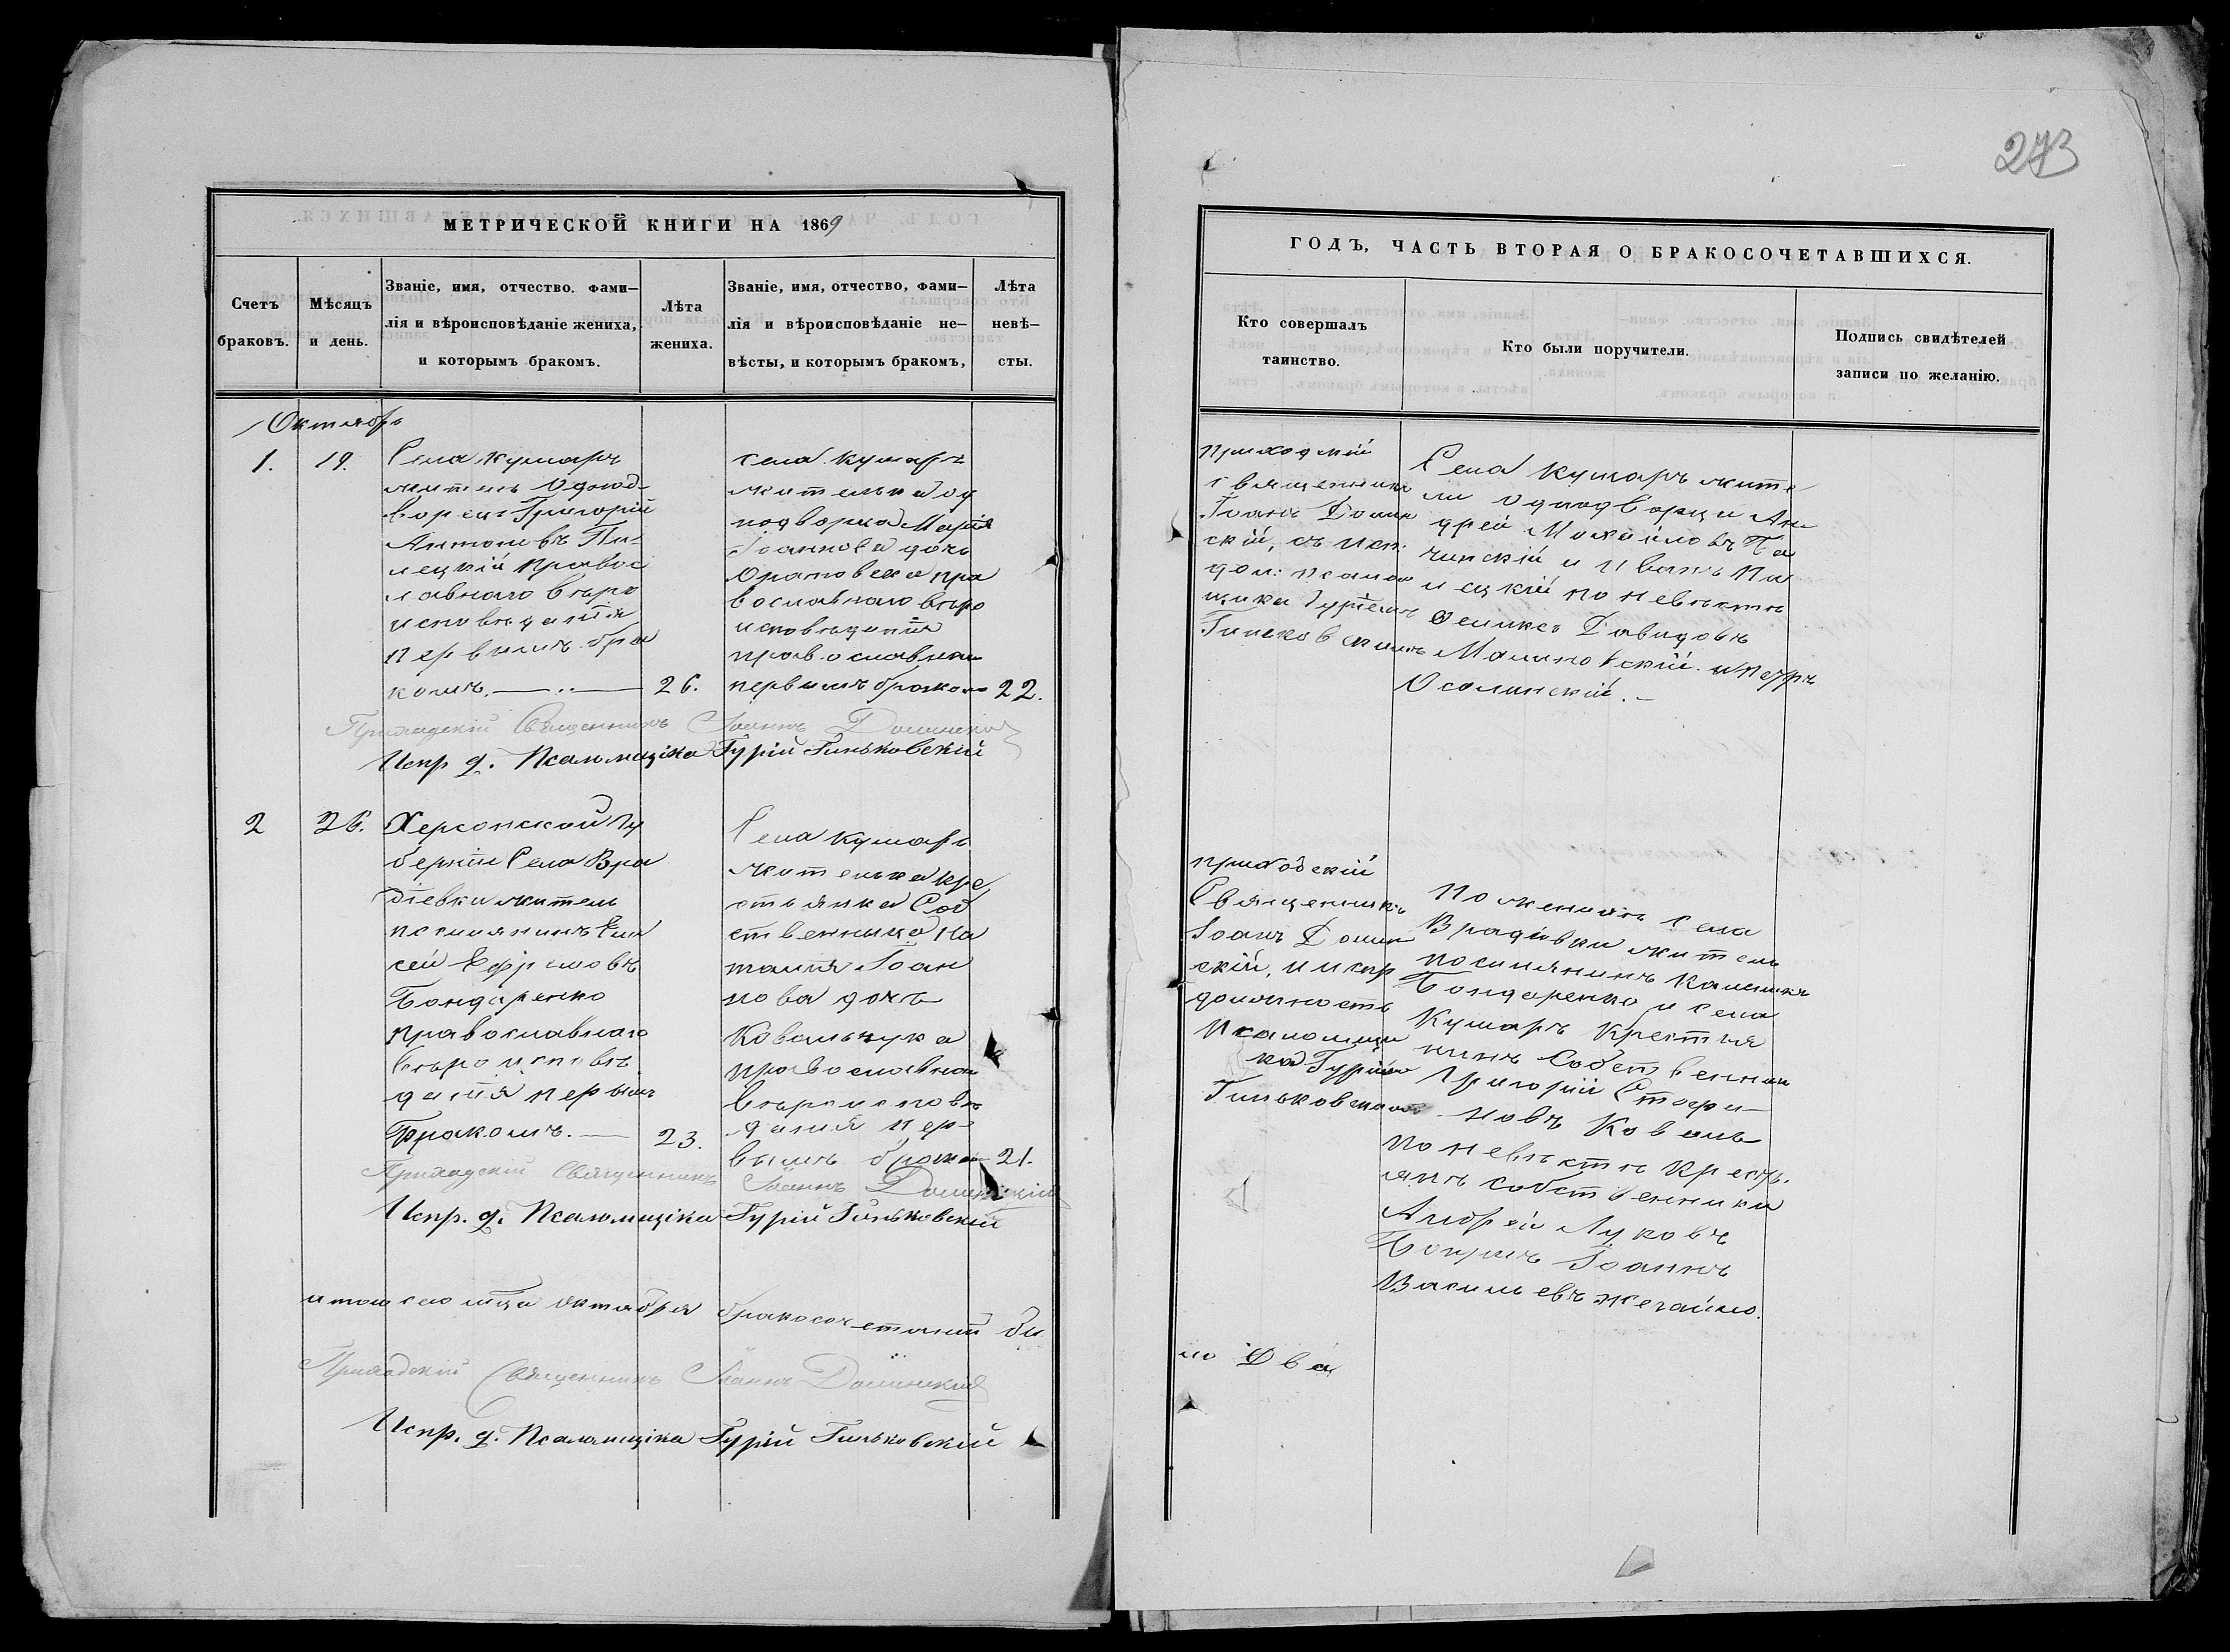 МЕТРИЧЕСКОЙ КНИГИ НА 1869
Счетъ браковъ.
Мѣсяцъ и день.
Званіе, имя, отчество. фами-
лія и вѣроисповѣданіе жениха,
и которымъ бракомъ.
Лѣта жениха.
Званіе, имя, отчество, фами-
лія и вѣроисповѣданіе не-
вѣсты, и которымъ бракомъ,
Лѣта невѣ-
сты.
Октябрь
1.
19.
Села Кумаръ
житель Однод-
ворецъ Григорій
Антоновъ Пи-
лецкій правос
лавнаго вѣро
исповѣданія
первымъ бра
комъ.
26.
села Кумаръ
жителька од
нодворка Марія
Іоаннова дочь
православнаго вѣро
исповѣданія
православная
первымъ бракомъ
22.
Приходскій Священникъ Іоаннъ Долинскій
Испр. д. Псаломщика Гурій Гиньковскій
2
26.
Херсонской Гу
берніи Села Вра
діевки житель
поселянинъ Ели
сей Ефремовъ
Бондаренко
православнаго
вѣроисповѣ
данія первымъ
Бракомъ.
23.
Села Кумаръ
жителька кре
стьянка Соб
ственница На
талія Іоан
нова дочь
Ковальчука
православная
вѣроисповѣ
данія пер-
вымъ бракомъ
21.
Приходскій Священникъ Іоаннъ Долинскій
Испр. д. Псаломщика Гурій Гиньковскій
итого сего мца октября бракосочетаній бы
Приходскій Священникъ Іоаннъ Долинскій
Испр. д. Псаломщика Гурій Гиньковскій
273
ГОДЪ, ЧАСТЬ ВТОРАЯ О БРАКОСОЧЕТАВШИХСЯ.
Кто совершалъ
таинство.
Кто были поручители.
Подпись свидѣтелей
записи по желанію.
приходскій
священникъ
Іоанъ Долин
скій, съ исп:
дол: псалом
щика Гуріемъ
Гиньковскимъ
Села Кумаръ жите
ли однодворцы Ан
дрей Михайловъ
и Иванъ Пи
лецкій по невѣстѣ
Феликсъ Давидовъ
Малиновскій и Петръ
Осолинскій.
приходскій
Священникъ
Іоанъ Долин
скій, и испр
должность
Псаломщи
ка Гурій
Гиньковскій
По женихѣ села
Врадіевки житель
поселянинъ
Бондаренко и села
Кумаръ Крестья
нинъ Собственникъ
Григорій
новъ Коваль
по невѣстѣ крестъ.
янъ собственники
Андрей Луковъ
Іоаннъ
Васильевъ
ло Два